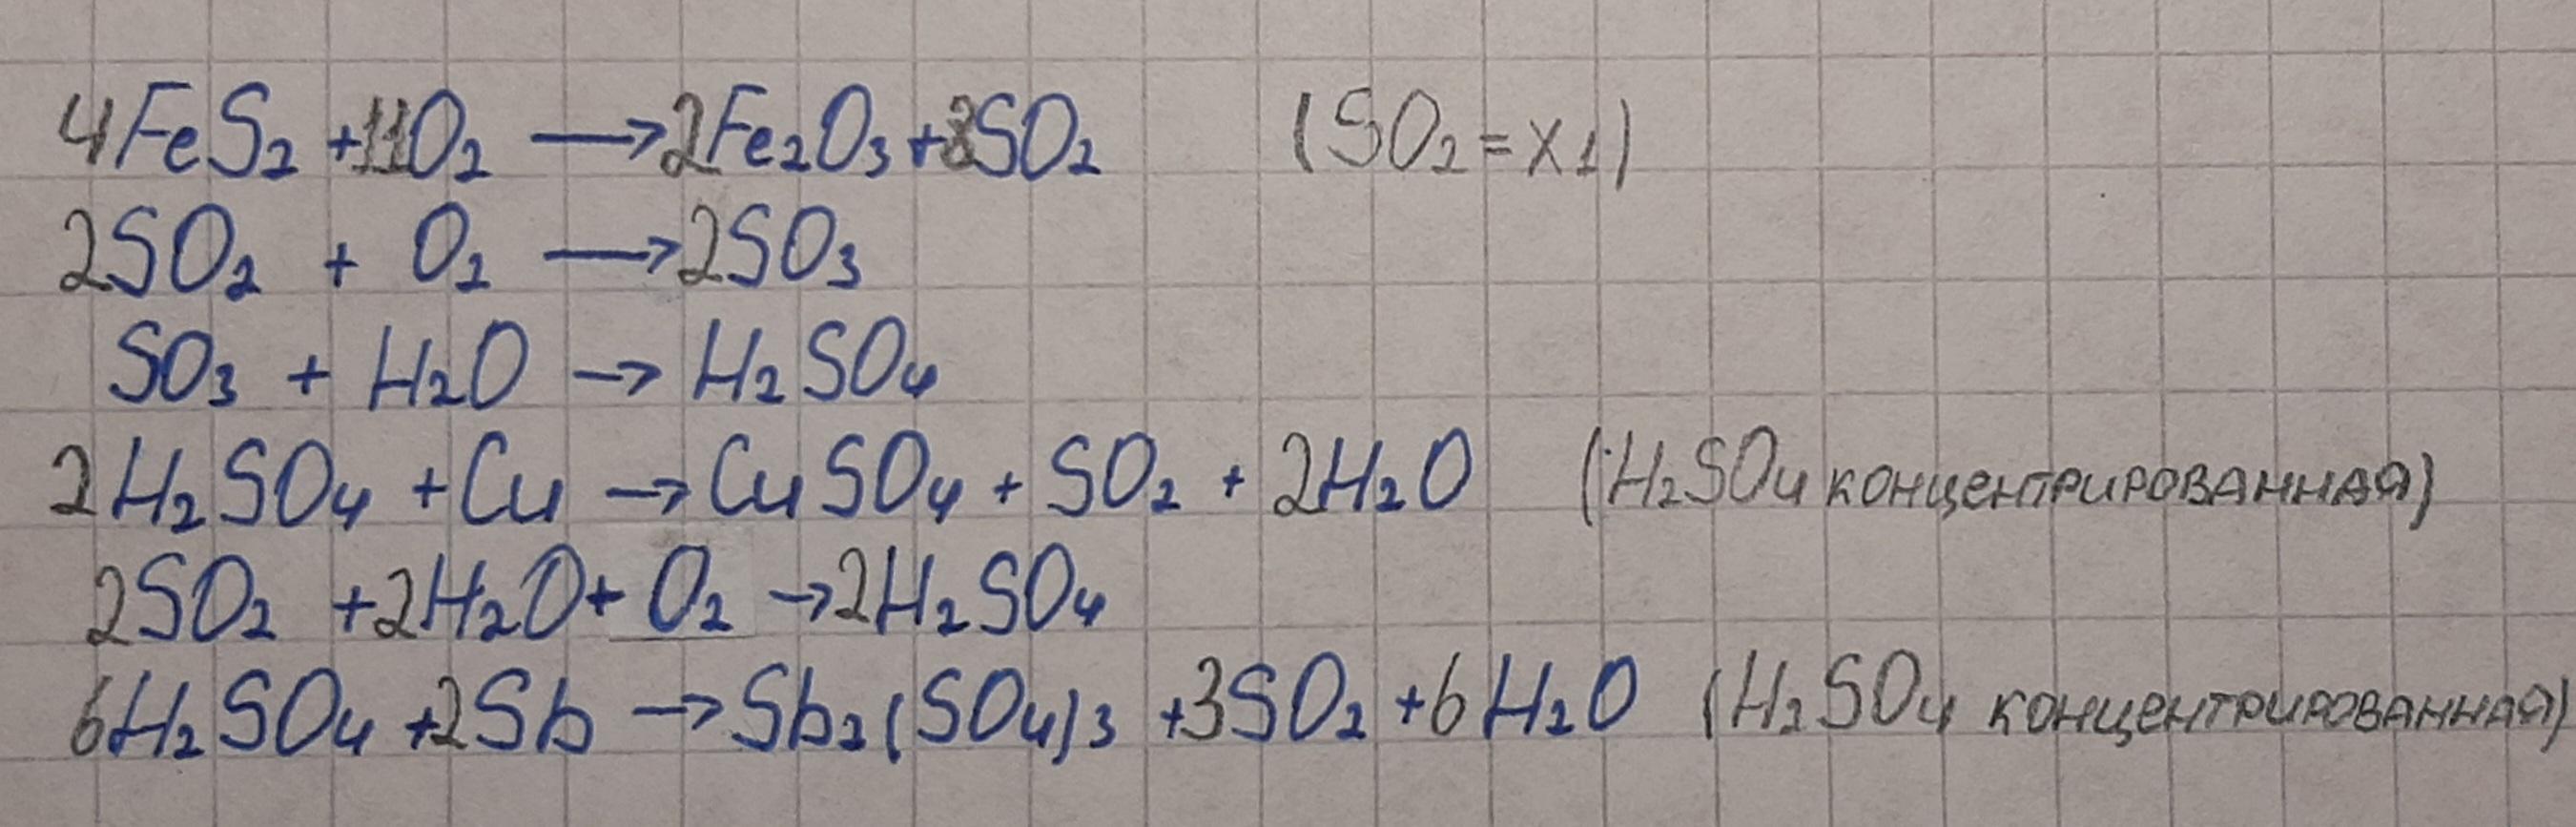 4FeS₂ +11O₂ ⟶ 2Fe₂O₃+8SO₂ (SO₂=X1)
2SO₂ + O₂ ⟶ 2SO₃
SO₃ + H₂O → H₂SO₄
2H₂SO₄ +Cu → CuSO₄ + SO₂ + 2H₂O (H₂SO₄ концентрированная)
2SO₂ +2H₂O+ O₂ → 2H₂SO₄
6H₂SO₄ +2Sb → Sb₂(SO₄)₃ +3SO₂ +6H₂O (H₂SO₄ концентрированная)